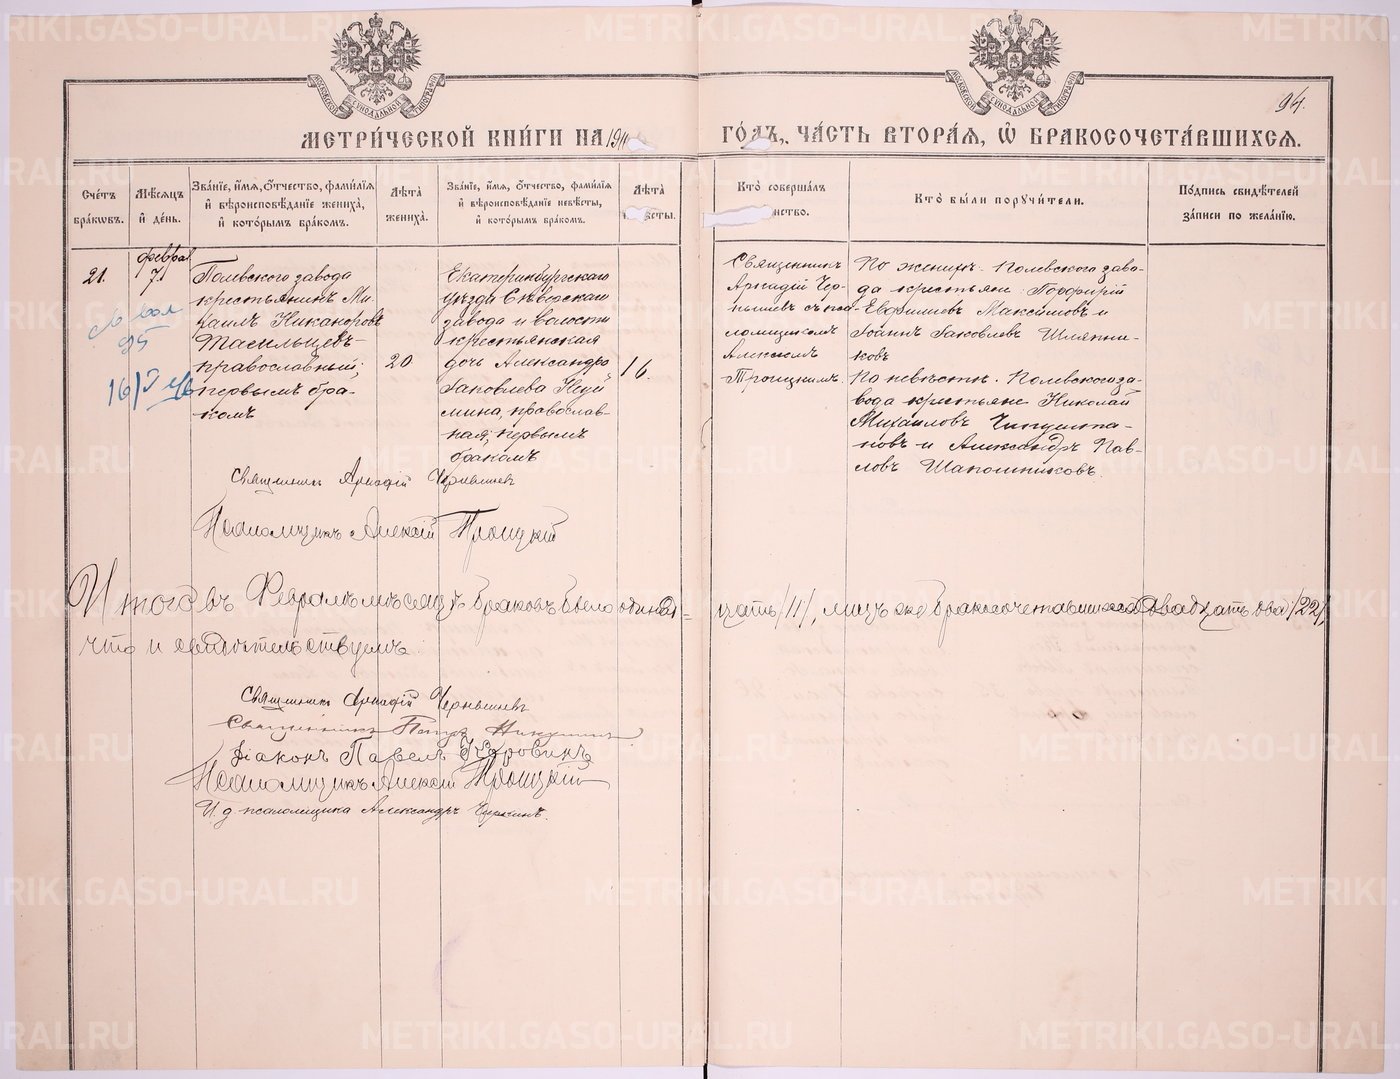 94.
МЕТРИ́ЧЕСКОЙ КНИ́ГИ НА 191
ГО́ДЪ, ЧА́СТЬ ВТОРА́Я, Ѡ БРАКОСОЧЕТА́ВШИХСЯ.
Сче́тъ бра́кѡвъ.
Мѣ́сяцъ и҆ де́нь.
Зва́нїе, и҆́мя, ѻ҆́тчество, фами́лїя и҆ вѣроисповѣ́данїе жениха̀, и҆ кото́рымъ бра́комъ.
Лѣ́та жениха̀.
Зва́нїе, и҆́мя, ѻ҆́тчество, фами́лїя и҆ вѣроисповѣ́данїе невѣ́сты, и҆ кото́рымъ бра́комъ.
Лѣ́та
Кто̀ соверша́лъ
Кто̀ бы́ли порꙋчи́тели.
По́дпись свидѣ́телей за́писи по жела́нїю.
21.
февра
7.
95
16/
Полевского завода
крестьянинъ Ми-
хаилъ Никаноровъ
православный,
первымъ бра-
комъ
20
Екатеринбургскаго
уѣзда Сѣверскаго
завода и волости
крестьянская
дочь Александра
Іаковлева Неуй
мина, православ-
ная, первымъ
бракомъ
16.
Священникъ
Аркадій Чер-
нышевъ съ пса
ломщикомъ
Алексѣемъ
Троицкимъ.
По женихѣ. Полевского заво-
да крестьяне Порфирій
Евфимовъ Максимовъ и
Іоаннъ Іаковлевъ Шляпни-
ковъ
По невѣстѣ. Полевского за-
вода крестьяне Николай
Михаиловъ Чипуишта-
новъ и Александръ Пав-
ловъ Шапошниковъ.
Священникъ Аркадій Чернышевъ
Псаломщикъ Алексій Троицкій
Итого въ Февралѣ мѣсяцѣ браковъ было одинад-
цать /11/, лицъ бракосочетавшихся двадцать два /22/,
что и свидѣтельствуемъ.
Священникъ Аркадій Чернышевъ
Священникъ Петръ Никулинъ
Діаконъ Павелъ
Псаломщикъ Алексій Троицкій
И. д. псаломщика Александръ